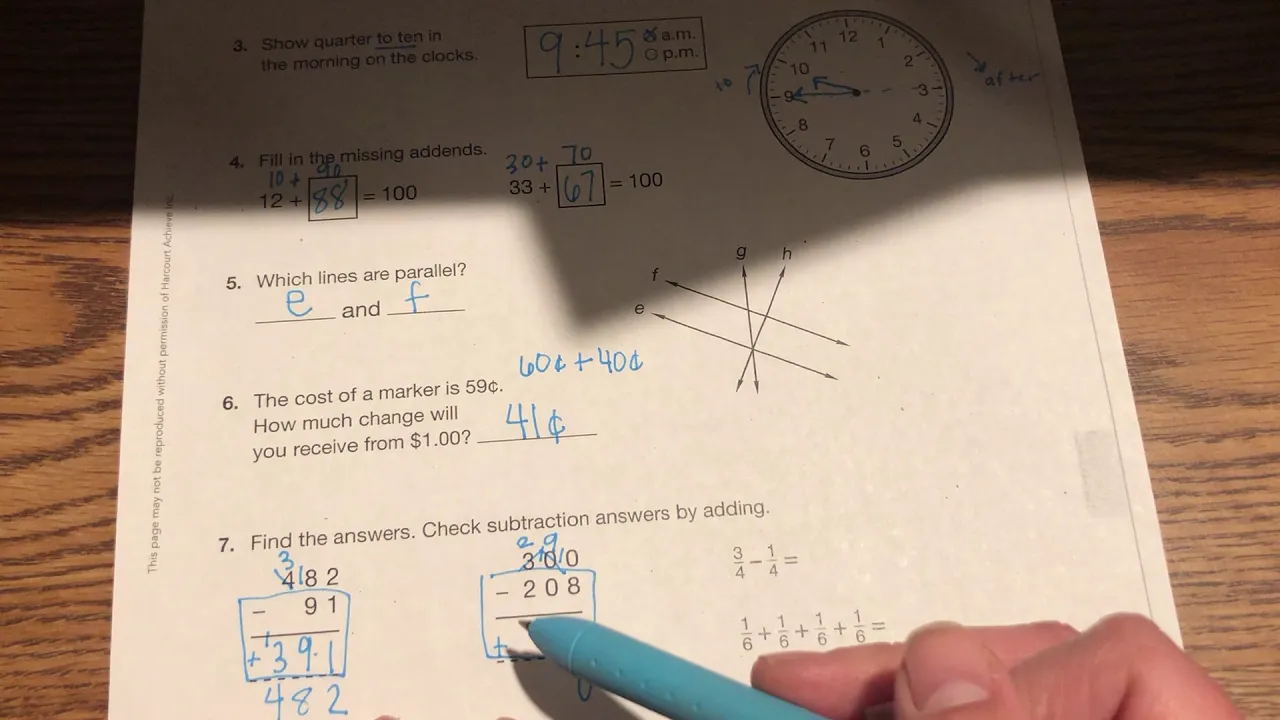 3. Show quarter to ten in
the morning on the clocks.
9:45
a.m.
p.m.
12
1
2
3
4
5
6
7
8
9
10
11
to
after
4. Fill in the missing addends.
10 + 90
12 + 88 = 100
30 + 70
33 + 67 = 100
5. Which lines are parallel?
e and f
f
e
g
h
60¢ + 40¢
6. The cost of a marker is 59¢.
How much change will
you receive from $1.00? 41¢
7. Find the answers. Check subtraction answers by adding.
3 1
482
- 91
1
+ 391
482
2 9
1 1
300
- 208
+
3/4 - 1/4 =
1/6 + 1/6 + 1/6 + 1/6 =
This page may not be reproduced without permission of Harcourt Achieve Inc.